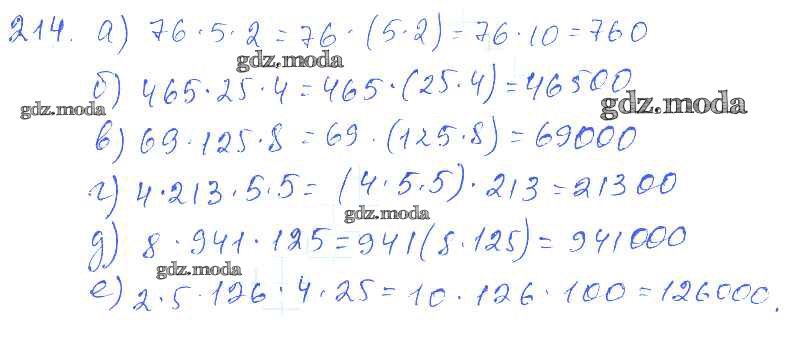 214. а) 76·5·2=76·(5·2)=76·10=760
gdz.moda
б) 465·25·4=465·(25·4)=46500
gdz.moda
gdz.moda
в) 69·125·8=69·(125·8)=69000
г) 4·213·5·5=(4·5·5)·213=21300
gdz.moda
д) 8·941·125=941(8·125)=941000
gdz.moda
е) 2·5·126·4·25=10·126·100=126000.